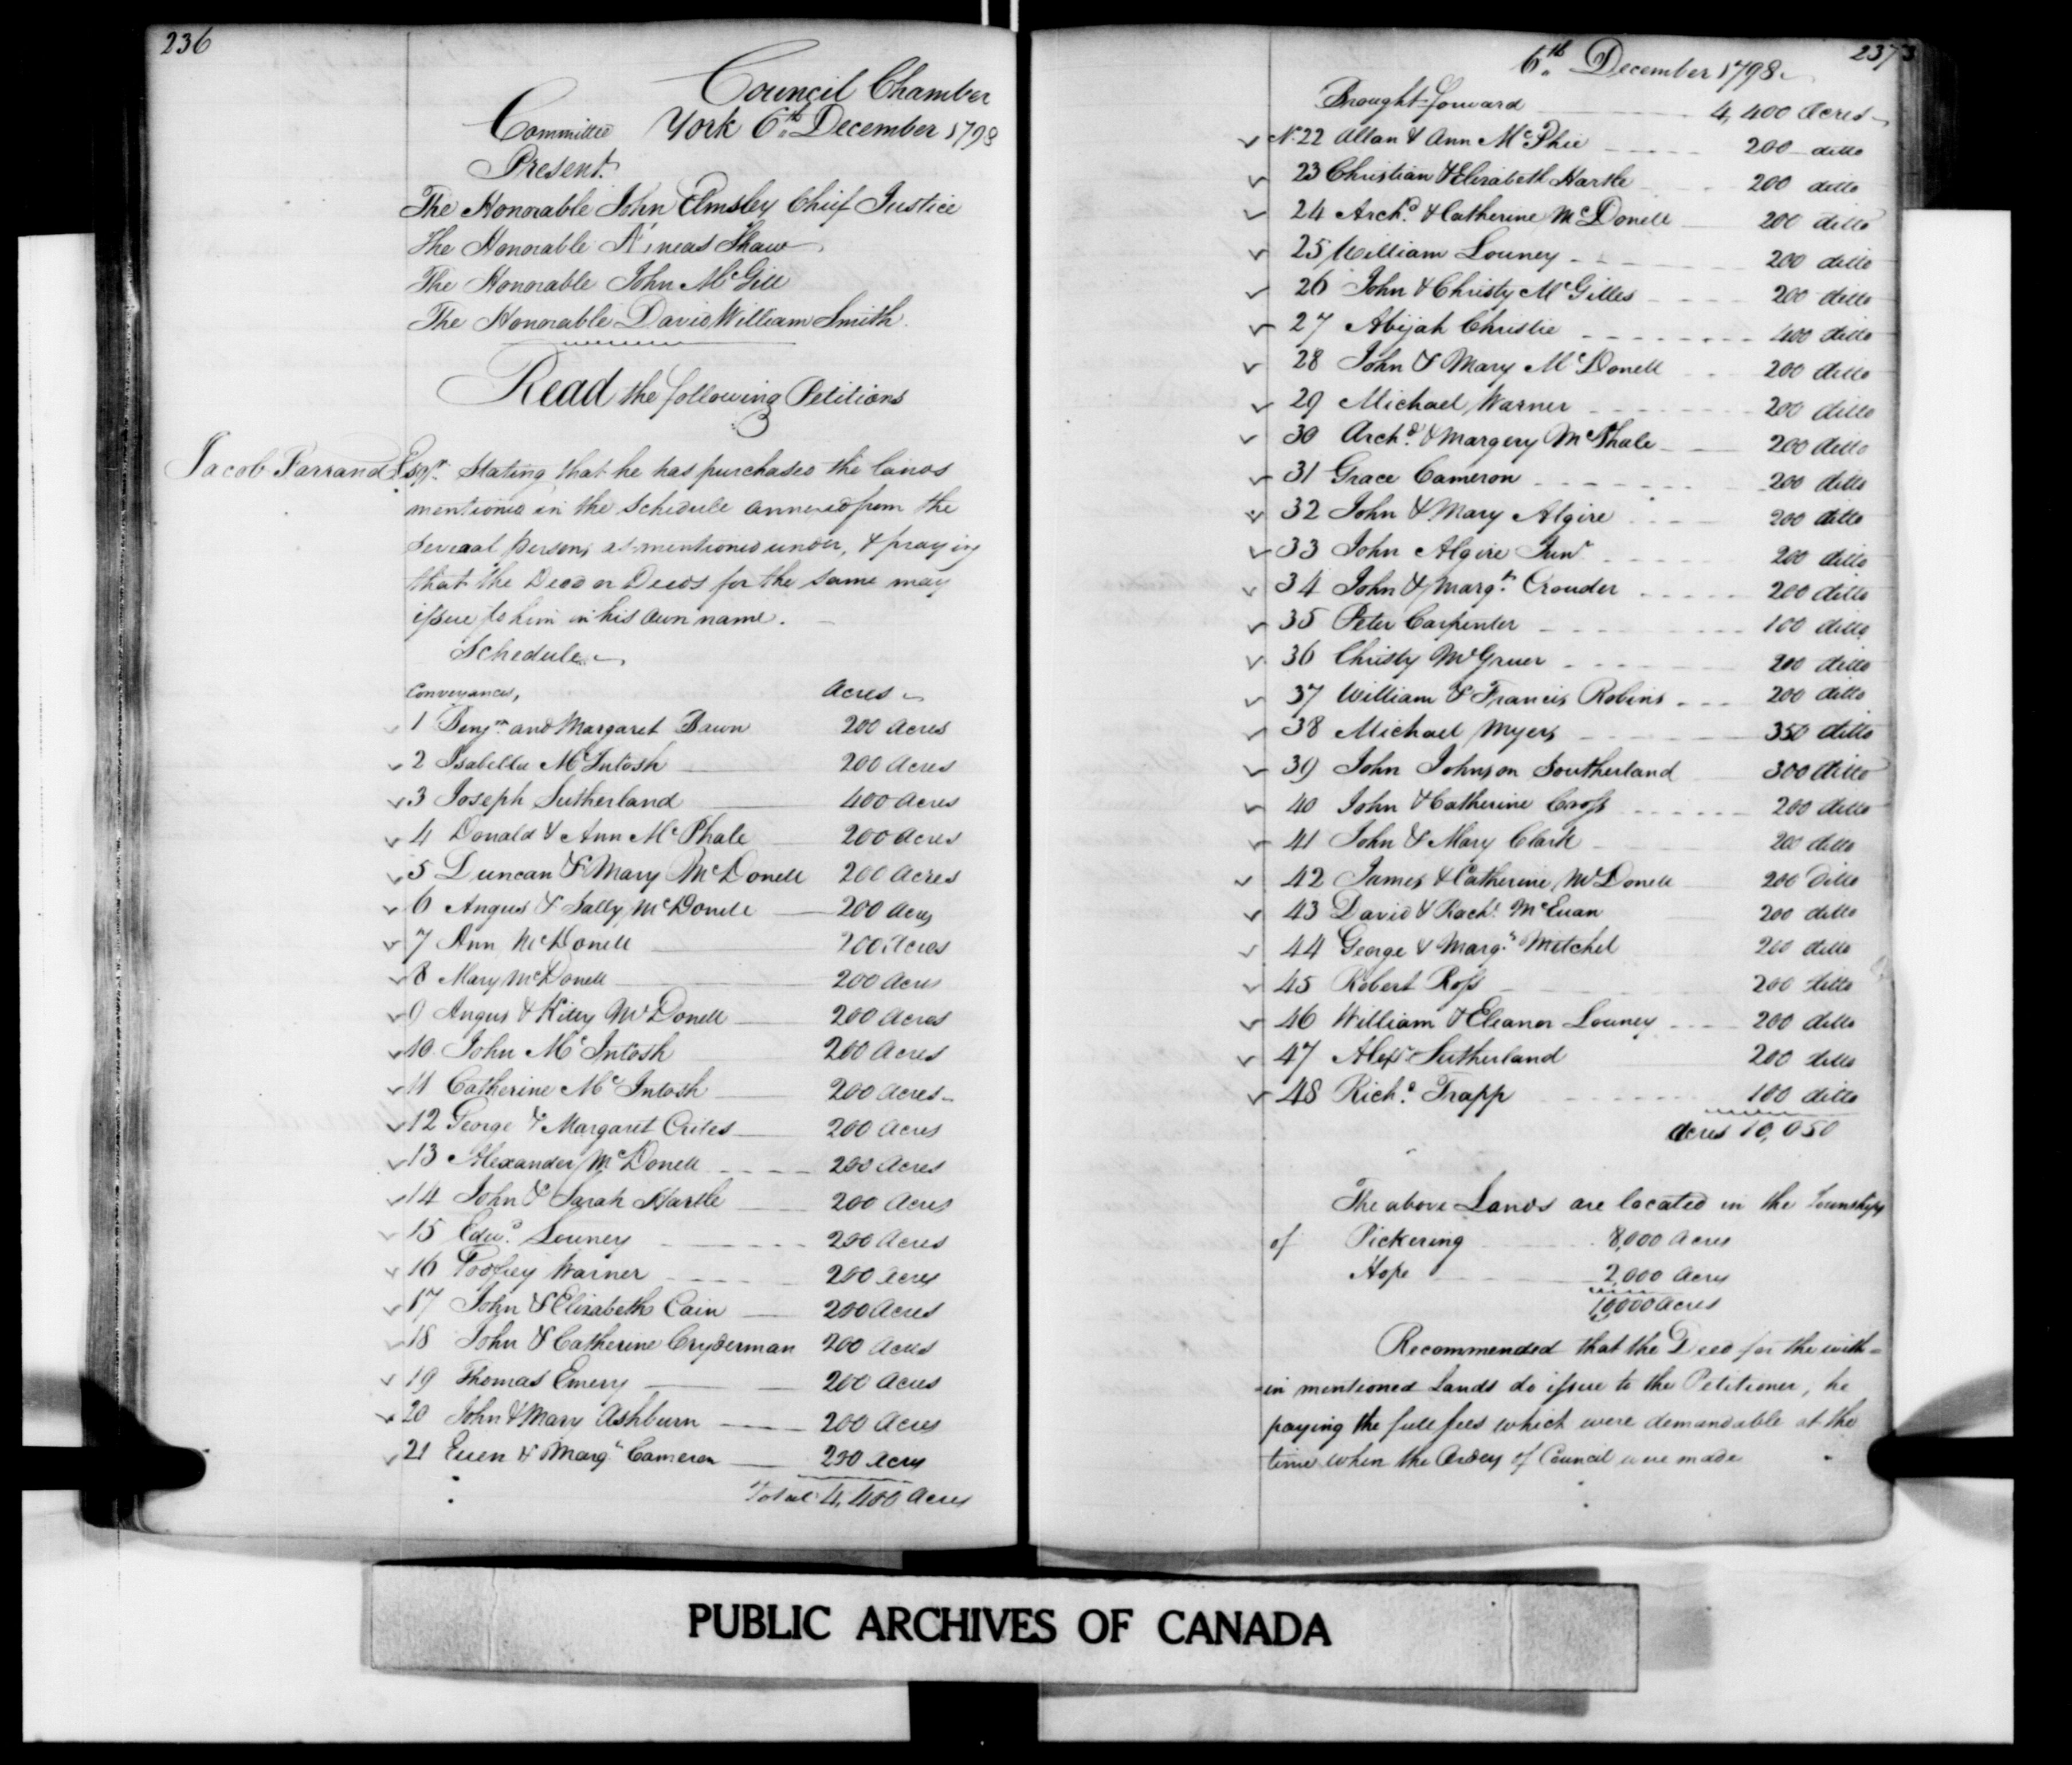 236
Council Chamber
Committee York 6th December 1798
Present
The Honorable John Elmsley Chief Justice
The Honorable Æneas Shaw
The Honorable John McGill
The Honorable David William Smith
Read the following Petitions
Jacob Farrand Esqr. Stating that he has purchased the lands
mentioned in the Schedule annexed from the
several persons as mentioned under, & praying
that the Deed or Deeds for the same may
issue to him in his own name.
Schedule
Conveyances, Acres
1 Benjn. and Margaret Bawn 200 Acres
2 Isabella McIntosh 200 Acres
3 Joseph Sutherland 400 Acres
4 Donald & Ann McPhale 200 Acres
5 Duncan & Mary McDonell 200 Acres
6 Angus & Sally McDonell 200 Acres
7 Ann McDonell 200 Acres
8 Mary McDonell 200 Acres
9 Angus & Kitty McDonell 200 Acres
10 John McIntosh 200 Acres
11 Catherine McIntosh 200 Acres
12 George & Margaret Crites 200 Acres
13 Alexander McDonell 200 Acres
14 John & Sarah Hartle 200 Acres
15 Edwd. Louney 200 Acres
16 Warner 200 Acres
17 John & Elizabeth Cain 200 Acres
18 John & Catherine Cryderman 200 Acres
19 Thomas Emery 200 Acres
20 John & Mary Ashburn 200 Acres
21 Euen & Margt. Cameron 200 Acres
Total 4,400 Acres
6th December 1798 237
Brought forward 4,400 Acres
No. 22 Allan & Ann McPhie 200 ditto
23 Christian & Elizabeth Hartle 200 ditto
24 Archd. & Catherine McDonell 200 ditto
25 William Louney 200 ditto
26 John & Christy McGilles 200 ditto
27 Abijah Christie 400 ditto
28 John & Mary McDonell 200 ditto
29 Michael Warner 200 ditto
30 Archd. & Margery McPhale 200 ditto
31 Grace Cameron 200 ditto
32 John & Mary Algire 200 ditto
33 John Algire Junr. 200 ditto
34 John & Margt. Crouder 200 ditto
35 Peter Carpenter 100 ditto
36 Christy McGruer 200 ditto
37 William & Francis Robins 200 ditto
38 Michael Myers 350 ditto
39 John Johnson Southerland 300 ditto
40 John & Catherine Cross 200 ditto
41 John & Mary Clark 200 ditto
42 James & Catherine McDonell 200 Ditto
43 David & Rachl. McEuan 200 ditto
44 George & Margt. Mitchel 200 ditto
45 Robert Ross 200 ditto
46 William & Eleanor Louney 200 ditto
47 Alexr. Sutherland 200 ditto
48 Richd. Trapp 100 ditto
Acres 10,050
The above Lands are located in the Townships
of Pickering 8,000 Acres
Hope 2,000 Acres
10,000 Acres
Recommended that the Deed for the with=
=in mentioned Lands do issue to the Petitioner, he
paying the full fees which were demandable at the
time when the Orders of Council were made
PUBLIC ARCHIVES OF CANADA